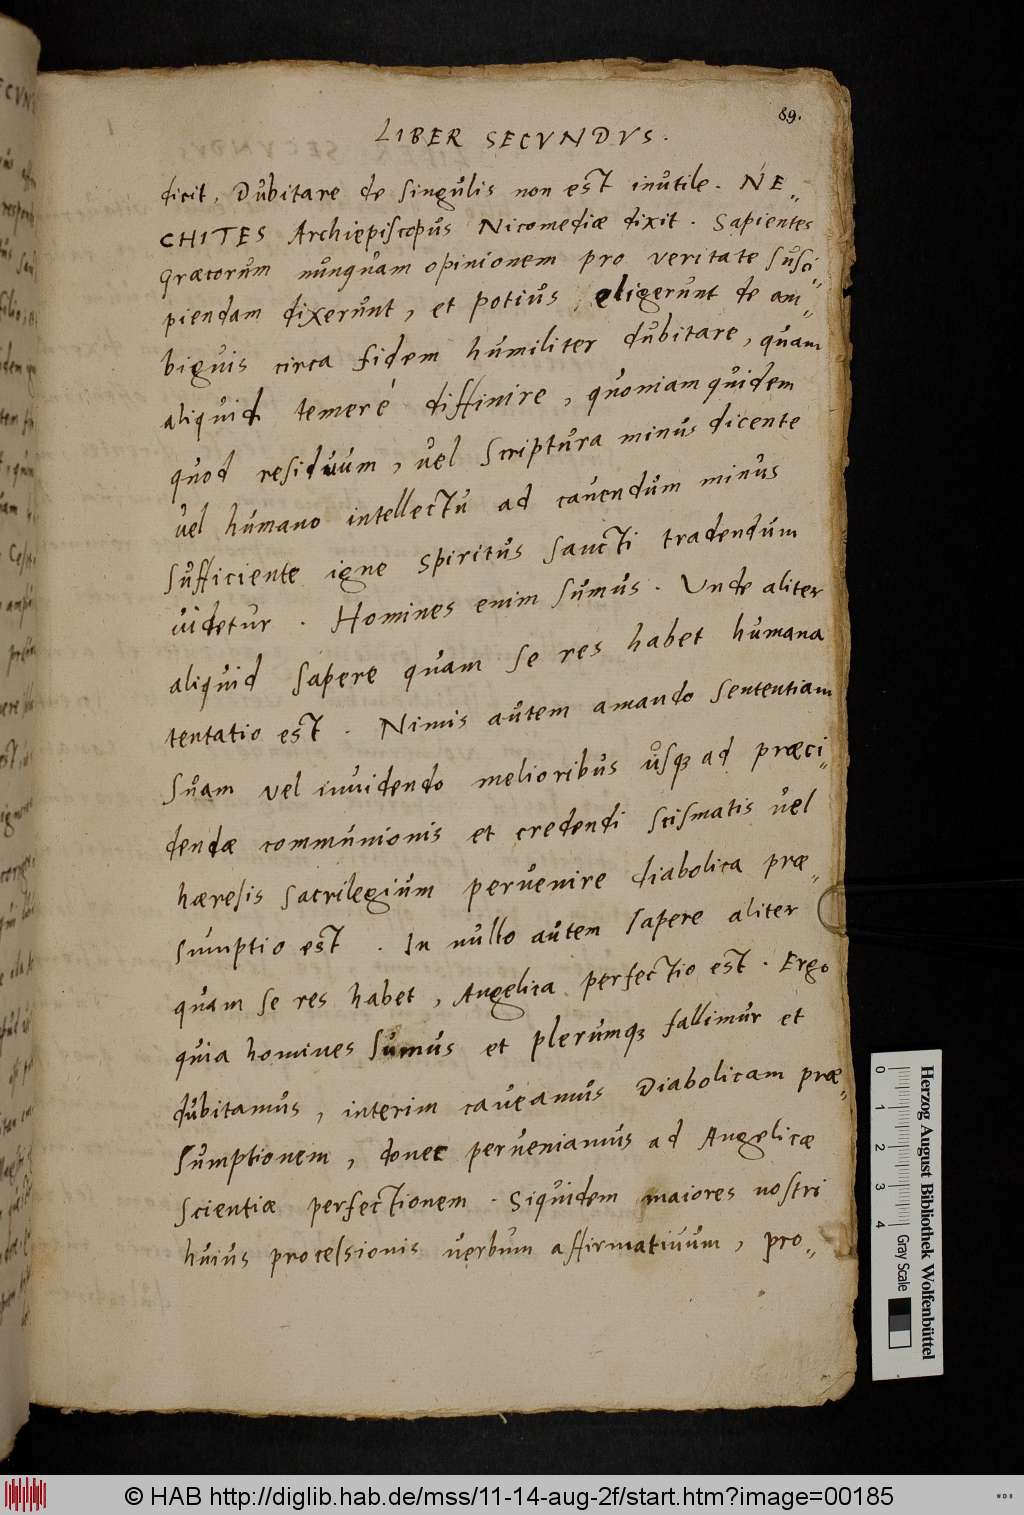 89.
LIBER SECVNDVS.
dicit, Dubitare de singulis non est inutile. NE„
CHITES Archiepiscopus Nicomediæ dixit. Sapientes
Græcorum nunquam opinionem pro veritate susci„
piendam dixerunt, et potius eligerunt de am„
biguis circa fidem humiliter dubitare, quam
aliquid temeré diffinire, quoniam quidem
quod residuum, vel scriptura minus dicente
vel humano intellectu ad cauendum minus
sufficiente igne spiritus sancti tradendum
uidetur. Homines enim sumus. Unde aliter
aliquid sapere quam se res habet humana
tentatio est. Nimis autem amando sententiam
suam vel inuidendo melioribus usq₃ ad præci„
dendæ communionis et credendi scismatis vel
hæresis sacrilegium peruenire diabolica præ„
sumptio est. In nullo autem sapere aliter
quam se res habet, Angelica perfectio est. Ergo
quia homines sumus et plerumq₃ fallimur et
dubitamus, interim caueamus Diabolicam præ„
sumptionem, donec perueniamus ad Angelicæ
scientiæ perfectionem. Siquidem maiores nostri
huius processionis uerbum affirmatiuum, pro„
0 1 2 3 4
Herzog August Bibliothek Wolfenbüttel
Gray Scale
© HAB http://diglib.hab.de/mss/11-14-aug-2f/start.htm?image=00185